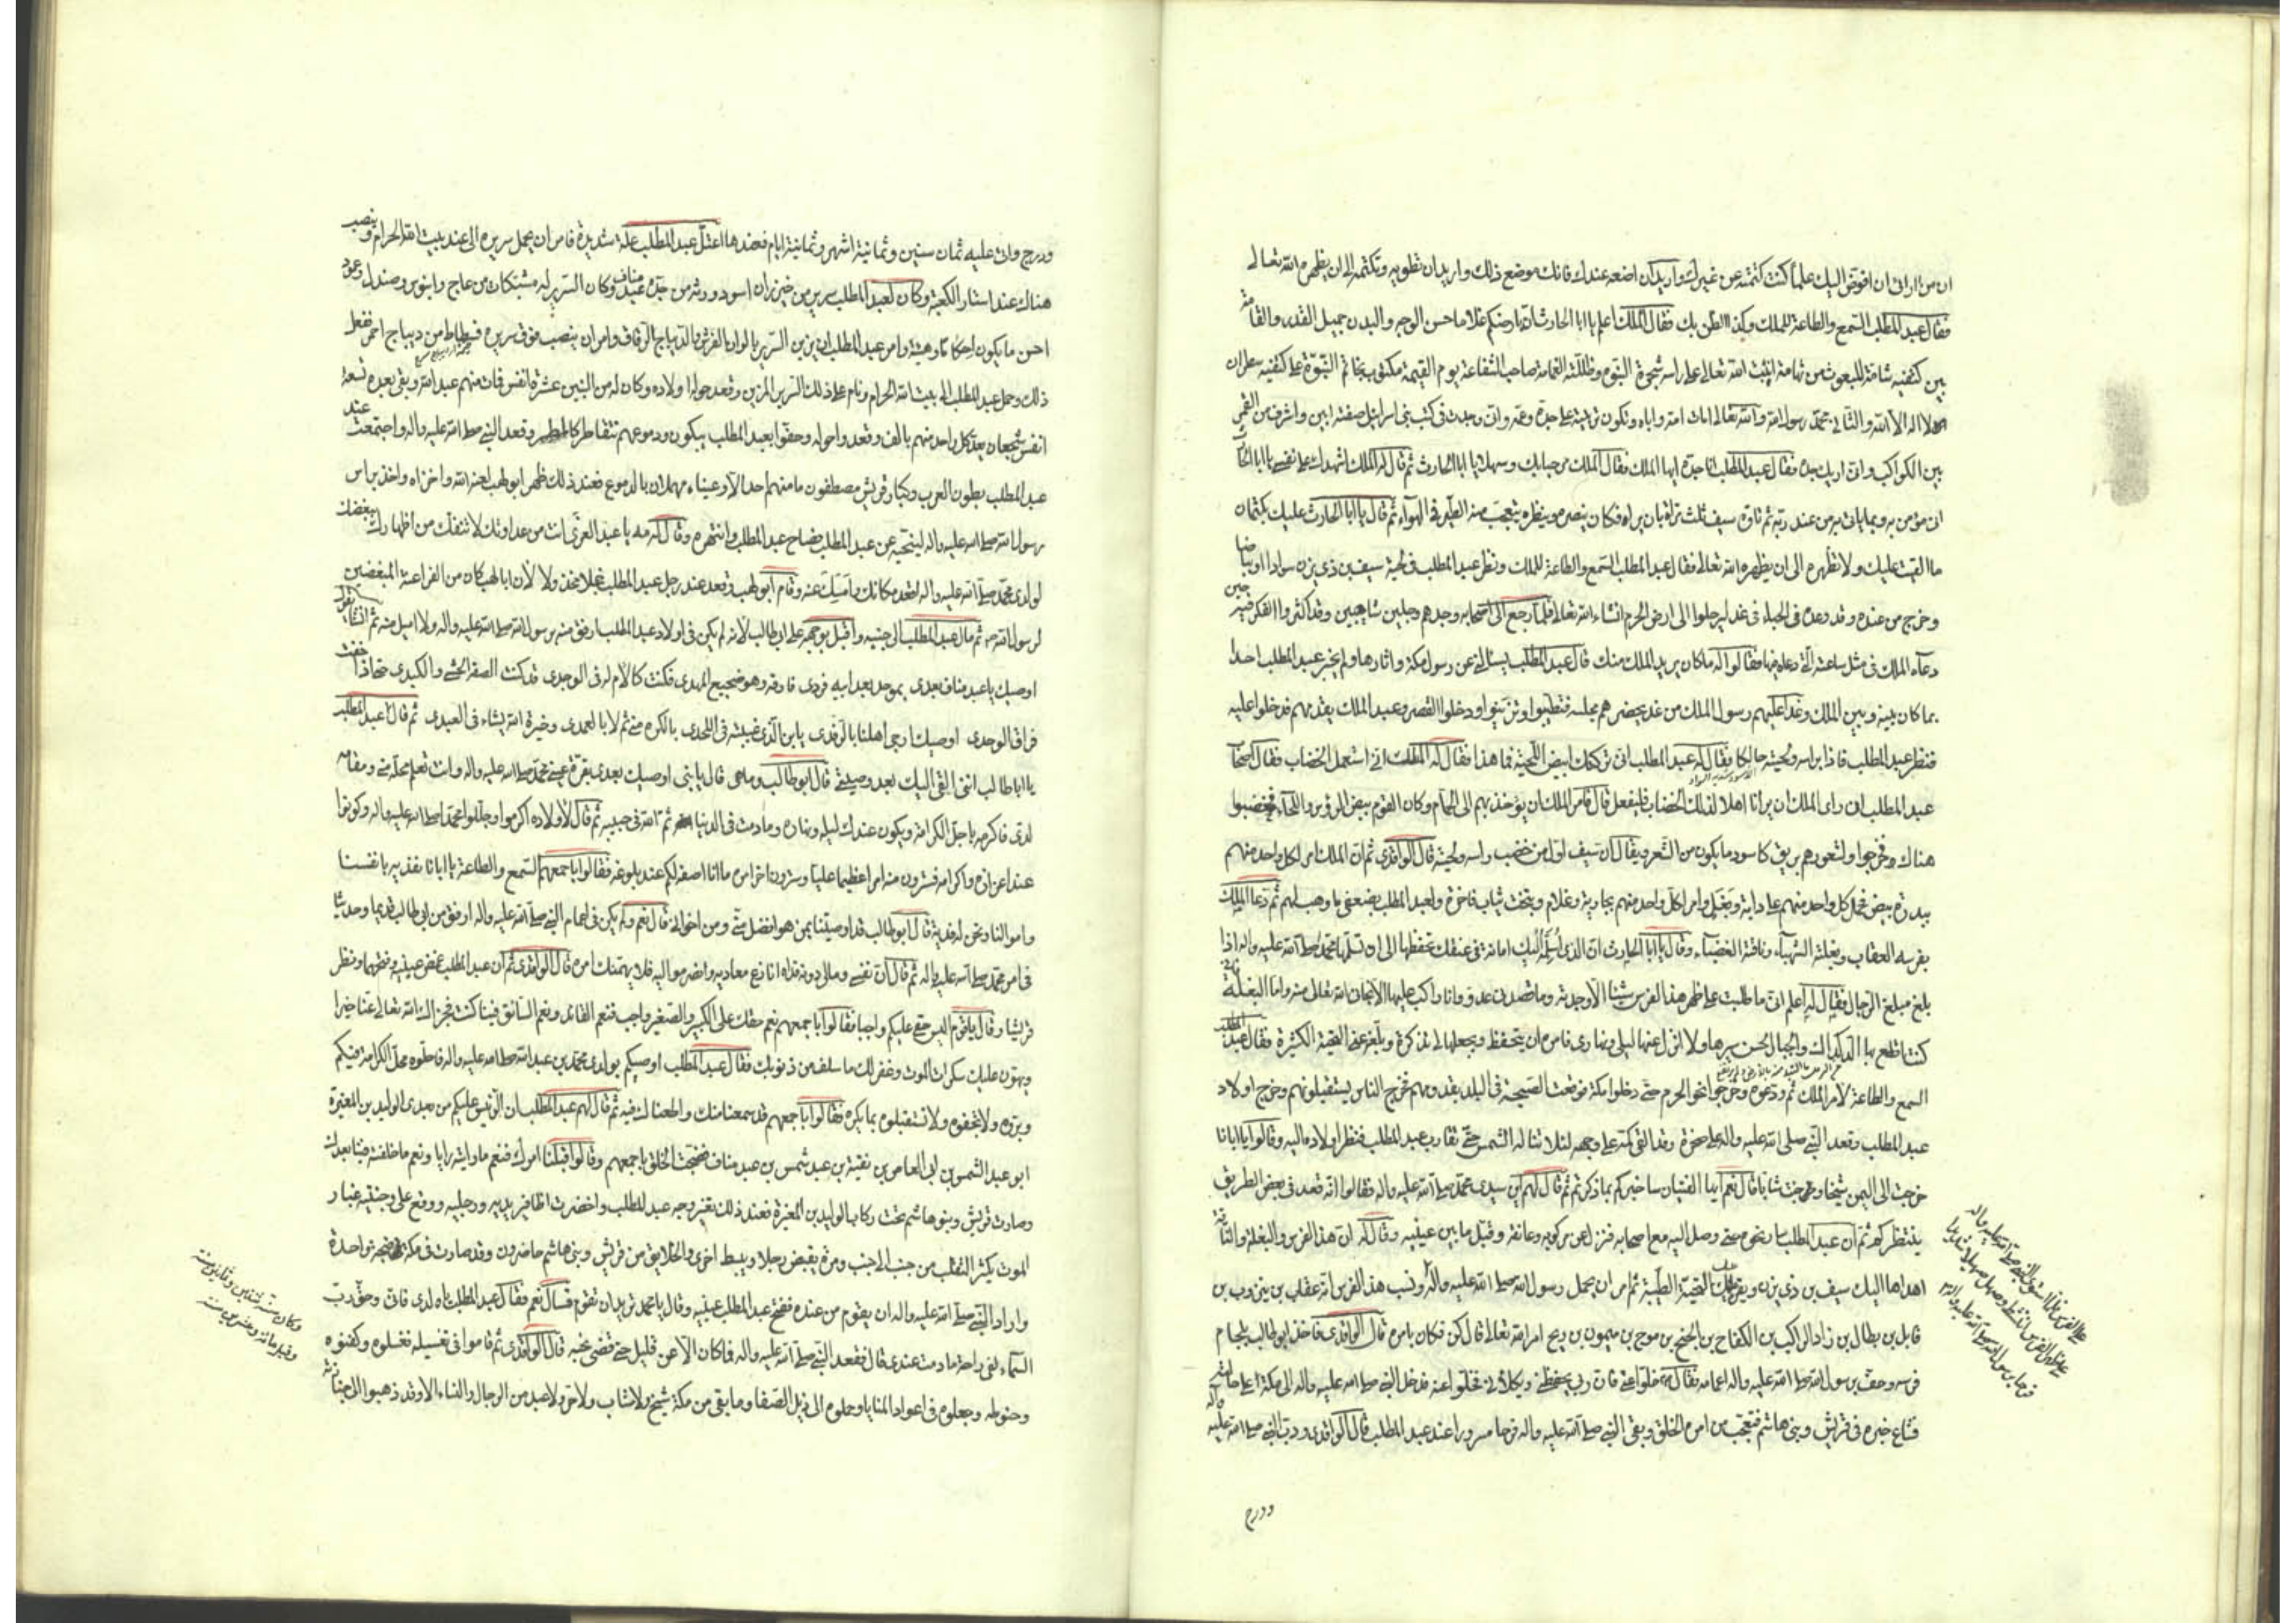 ان من ارائ ان افوض اليك علماً كنت كتمته عن غيرك واريد ان اضعه عندك فانك موضع ذلك واريد ان تطويه وتكتمه الى ان يظهره الله تعالى
فقال عبد المطلب السمع والطاعة للملك وكذا الظن بك فقال الملك اعلم يا ابا الحارث ان بارضكم غلاما حسن الوجه والبدن جميل القد والقامة
بين كتفيه شامة المبعوث من تهامة انبت الله تعالى على راسه شجرة النبوة وظللته الغمامة صاحب الشفاعة يوم القيمة مكتوب بخاتم النبوة على كتفيه سطران
لا اله الا الله والثاني محمد رسول الله والله تعالى امات امه واباه وتكون تربيته على جده وعمه وانى وجدت فى كتب بنى اسرائيل صفته ابين واشرف من القمر
بين الكواكب وانى اريك جده فقال عبد المطلب انا جده ايها الملك فقال الملك مرحبا بك وسهلا يا ابا الحارث ثم قال له الملك اشهدك على نفسى يا ابا الحارث
انى مؤمن به وبما ياتى به من عند ربه ثم تاوه سيف ثلث مرات بان يراه فكان ينصره وينظره يتعجب منه الطير فى الهوآء ثم قال يا ابا الحارث عليك بكتمان
ما القيت عليك ولا تظهره الى ان يظهره الله تعالى فقال عبد المطلب السمع والطاعة للملك ونظر عبد المطلب فى لحية سيف بن ذى يزن سوادا وبياضا
وخرج من عنده وقد وعده فى الحباء فى غد ليرحلوا الى ارض الحرم انشاء الله تعالى فلما رجع الى اصحابه وجدهم وجلين شاحبين وقد اكثروا الفكر فيه حين
دعاه الملك فى مثل ساعته التى دعاه فيها فقالوا له ما كان يريد الملك منك قال عبد المطلب يسئلنى عن رسوم مكة واثارها ولم يخبر عبد المطلب احدا
بما كان بينه وبين الملك وغدا عليهم رسول الملك من غد يحضرهم مجلسه فتطيبوا وتزينوا ودخلوا القصر وعبد الملك يقدمهم فدخلوا عليه
فنظر عبد المطلب فاذا براسه ولحيته حالكا فقال له عبد المطلب انى تركتك ابيض اللحية فما هذا فقال له الملك انى استعمل الخضاب فقال اصحاب
عبد المطلب ان راى الملك ان يرانا اهلا لذلك الخضاب فليفعل قال فامر الملك ان يؤخذ بهم الى الحمام وكان القوم بيض الرؤس واللحا فخضبوا
هناك وخرجوا ولشعورهم بريق كاسود ما يكون من الشعر ويقال ان سيف اول من خضب راسه ولحيته قال الواقدى ثم ان الملك امر لكل واحد منهم
ببدرة بيض فحمل كل واحد منهم على دابة وبغل وامر لكل واحد منهم بجارية وغلام وتخت ثياب فاخرة ولعبد المطلب بضعفى ما وهب لهم ثم دعا الملك
بفرسه العقاب وبغلته الشهبآء وناقته الغضبآء وقال يا ابا الحارث ان الذى اسلمه اليك امانة فى عنقك تحفظها الى ان تسلمها محمد صلى الله عليه واله اذا
بلغ مبلغ الرجال فقال له اعلم انى ما طلبت على ظهر هذا الفرس شيئا الا وجدته وما قصدنى عدو وانا راكب عليها الا نجانى الله تعالى منه واما البغلة فانى
كنت اقطع بها الدكداك والجبال لحسن سيرها ولا انزل عنها ليلى ونهارى فامره ان يتحفظ ويجعلها لى تذكرة وبلغه عنى التحية الكثيرة فقال عبد المطلب
السمع والطاعة لامر الملك ثم ودعوه وخرجوا نحو الحرم حتى دخلوا مكة فوقعت الصيحة فى البلد بقدومهم فخرج الناس يستقبلونهم وخرج اولاد
عبد المطلب وقعد النبى صلى الله عليه واله على صخرة وقد القى كمه على وجهه لئلا تناله الشمس حتى تقارب عبد المطلب فنظر اولاده اليه وقالوا يا ابانا
خرجت الى اليمن شيخا ورجعت شابا قال نعم ايها الفتيان ساخبركم بما ذكرتم ثم قال لهم اين سيدى محمد صلى الله عليه واله فقالوا انه قعد فى بعض الطريق
ينتظركم ثم ان عبد المطلب سار نحوه حتى وصل اليه مع اصحابه فنزل عن مركوبه وعانقه وقبل ما بين عينيه وقال له ان هذا الفرس والبغلة والناقة
اهداها اليك سيف بن ذى يزن ويقرء عليك التحية الطيبة ثم امر ان يحمل رسول الله صلى الله عليه واله ونسب هذا الفرس انه عقاب بن ينزوب بن
قابل بن بطال بن زاد الراكب بن الكفاح بن الجنح بن موج بن ميمون بن ريح امر الله تعالى قال كن فكان بامره قال الواقدى فاخذ ابو طالب بلجام
فرسه وحف برسول الله صلى الله عليه واله اعمامه فقال خلوا عنى فان ربى يحفظنى ويكلائنى فخلوا عنه فدخل النبى صلى الله عليه واله الى مكة على حالته
فشاع خبره فى قريش وبنى هاشم فتعجب من امره الخلق وبقى النبى صلى الله عليه واله فرحا مسرورا عند عبد المطلب قال الواقدى ودب النبى صلى الله عليه واله
ودرج
ودرج واتى عليه ثمان سنين وثمانية اشهر وثمانية ايام فعندها اعتل عبد المطلب علة شديدة فامر ان يحمل سريره الى عند بيت الله الحرام وينصب
هناك عند استار الكعبة وكان لعبد المطلب سرير من خيزران اسود ورثه من جده عبد مناف وكان السرير له مشتبكات من عاج وابنوس وصندل وعود
احسن ما يكون احكاما وهيئة وامر عبد المطلب ان يزين السرير بالوان الفرش والديباج الرقاق وامر ان ينصب فوق سريره فسطاط من ديباج احمر ففعل
ذلك وحمل عبد المطلب الى بيت الله الحرام ونام على ذلك السرير المزين وقعد حوله اولاده وكان له من البنين عشرة انفس فمات منهم عبد الله وبقى بعده تسعة
انفس شجعان يعد كل واحد منهم بالف وقعدوا حوله وحفوا بعبد المطلب يبكون ودموعهم تتقاطر كالمطر وقعد النبى صلى الله عليه واله واجتمعت عند
عبد المطلب بطون العرب وكبار قريش مصطفون ما منهم احد الا وعيناه يهملان بالدموع فعند ذلك ظهر ابو لهب لعنه الله واخزاه واخذ براس
رسول الله صلى الله عليه واله لينحيه عن عبد المطلب فصاح عبد المطلب وانتهره وقال له مه يا عبد العزى انت من عداوتك لا تنفك من اظهارك ببغضك
لولدى محمد صلى الله عليه واله اقعد مكانك وامسك عنه وقام ابو لهب وقعد عند رجل عبد المطلب خجلا مخذولا لان ابا لهب كان من الفراعنة المبغضين
لرسول الله ص ثم مال عبد المطلب الى جنبيه واقبل بوجهه على ابى طالب لانه لم يكن فى اولاد عبد المطلب ارفق منه برسول الله صلى الله عليه واله ولا اميل منه ثم انشأ يقول
اوصيك يا عبد مناف بعدى بموحد بعد ابيه فردى فارقه وهو ضجيع المهدى فكنت كالام له فى الوجدى قد كنت الصقه الحشى والكبدى حتى اذا خفت
فراق الوحدى اوصيك ارجى اهلنا بالرفدى يا بن الذى غيبته فى اللحدى بالكره منى ثم لا بالعمدى وخيرة الله يشاء فى العبدى ثم قال عبد المطلب
يا ابا طالب اننى القى اليك بعد وصيتى قال ابو طالب وما هى قال يا بنى اوصيك بعدى بقرة عينى محمد صلى الله عليه واله وانت تعلم محله منى ومقامه
لدى فاكرمه باجل الكرامة ويكون عندك ليله ونهاره وما دمت فى الدنيا ثم الله الله فى حبيبه ثم قال لاولاده اكرموا وجللوا محمدا صلى الله عليه واله وكونوا
عند اعزازه واكرامه فسترون منه امرا عظيما عليا وسترون اخر امره ما انا اصفه لكم عند بلوغه فقالوا باجمعهم السمع والطاعة يا ابانا نفديه بانفسنا
واموالنا ونحن له فدية قال ابو طالب قد اوصيتنا بمن هو افضل منى ومن اخوانى قال نعم ولم يكن فى اعمام النبى صلى الله عليه واله ارفق من ابى طالب قديما وحديثا
فى امر محمد صلى الله عليه واله ثم قال ان نفسى ومالى دونه فداه انازع معاديه وانصر مواليه فلا يهمنك امره قال الواقدى ثم ان عبد المطلب غمض عينيه وفتحهما ونظر
قريشا وقال يا قوم اليس حقى عليكم واجبا فقالوا باجمعهم نعم حقك على الكبير والصغير واجب فنعم القائد ونعم السائق فينا كنت فجزاك الله تعالى عنا خيرا
ويهون عليك سكرات الموت وغفر لك ما سلف من ذنوبك فقال عبد المطلب اوصيكم بولدى محمد بن عبد الله صلى الله عليه واله فاحلوه محل الكرامة فيكم
وبروه ولا تجفوه ولا تستقبلوه بما يكره فقالوا باجمعهم قد سمعنا منك واطعناك فيه ثم قال لهم عبد المطلب ان الرئيس عليكم من بعدى الوليد بن المغيرة
ابو عبد الشمس بن ابى العاص بن نفية بن عبد شمس بن عبد مناف فضجت الخلق باجمعهم وقالوا قبلنا امرك فنعم ما رايته رايا ونعم ما خلفته فينا بعدك
وصارت قريش وبنو هاشم تحت ركاب الوليد بن المغيرة فعند ذلك تغير وجه عبد المطلب واخضرت اظافير يديه ورجليه ووقع على وجنتيه غبار
الموت يكثر التقلب من جنب الى جنب ومرة يقبض رجلا ويبسط اخرى والخلايق من قريش وبنى هاشم حاضرون وقد صارت فى مكة ضجة واحدة
واراد النبى صلى الله عليه واله ان يقوم من عنده ففتح عبد المطلب عينيه وقال يا محمد تريد ان تقوم قال نعم فقال عبد المطلب يا ولدى فانى وحق رب
السماء لفى راحة ما دمت عندى قال فقعد النبى صلى الله عليه واله فما كان الا عن قليل حتى قضى نحبه قال الواقدى ثم قاموا فى تغسيله فغسلوه وكفنوه
وحنوطه وجعلوه فى اعواد المنايا وحملوه الى ذيل الصفا وما بقى من مكة شيخ ولا شاب ولا حر ولا عبد من الرجال والنساء الا وقد ذهبوا الى جنازته